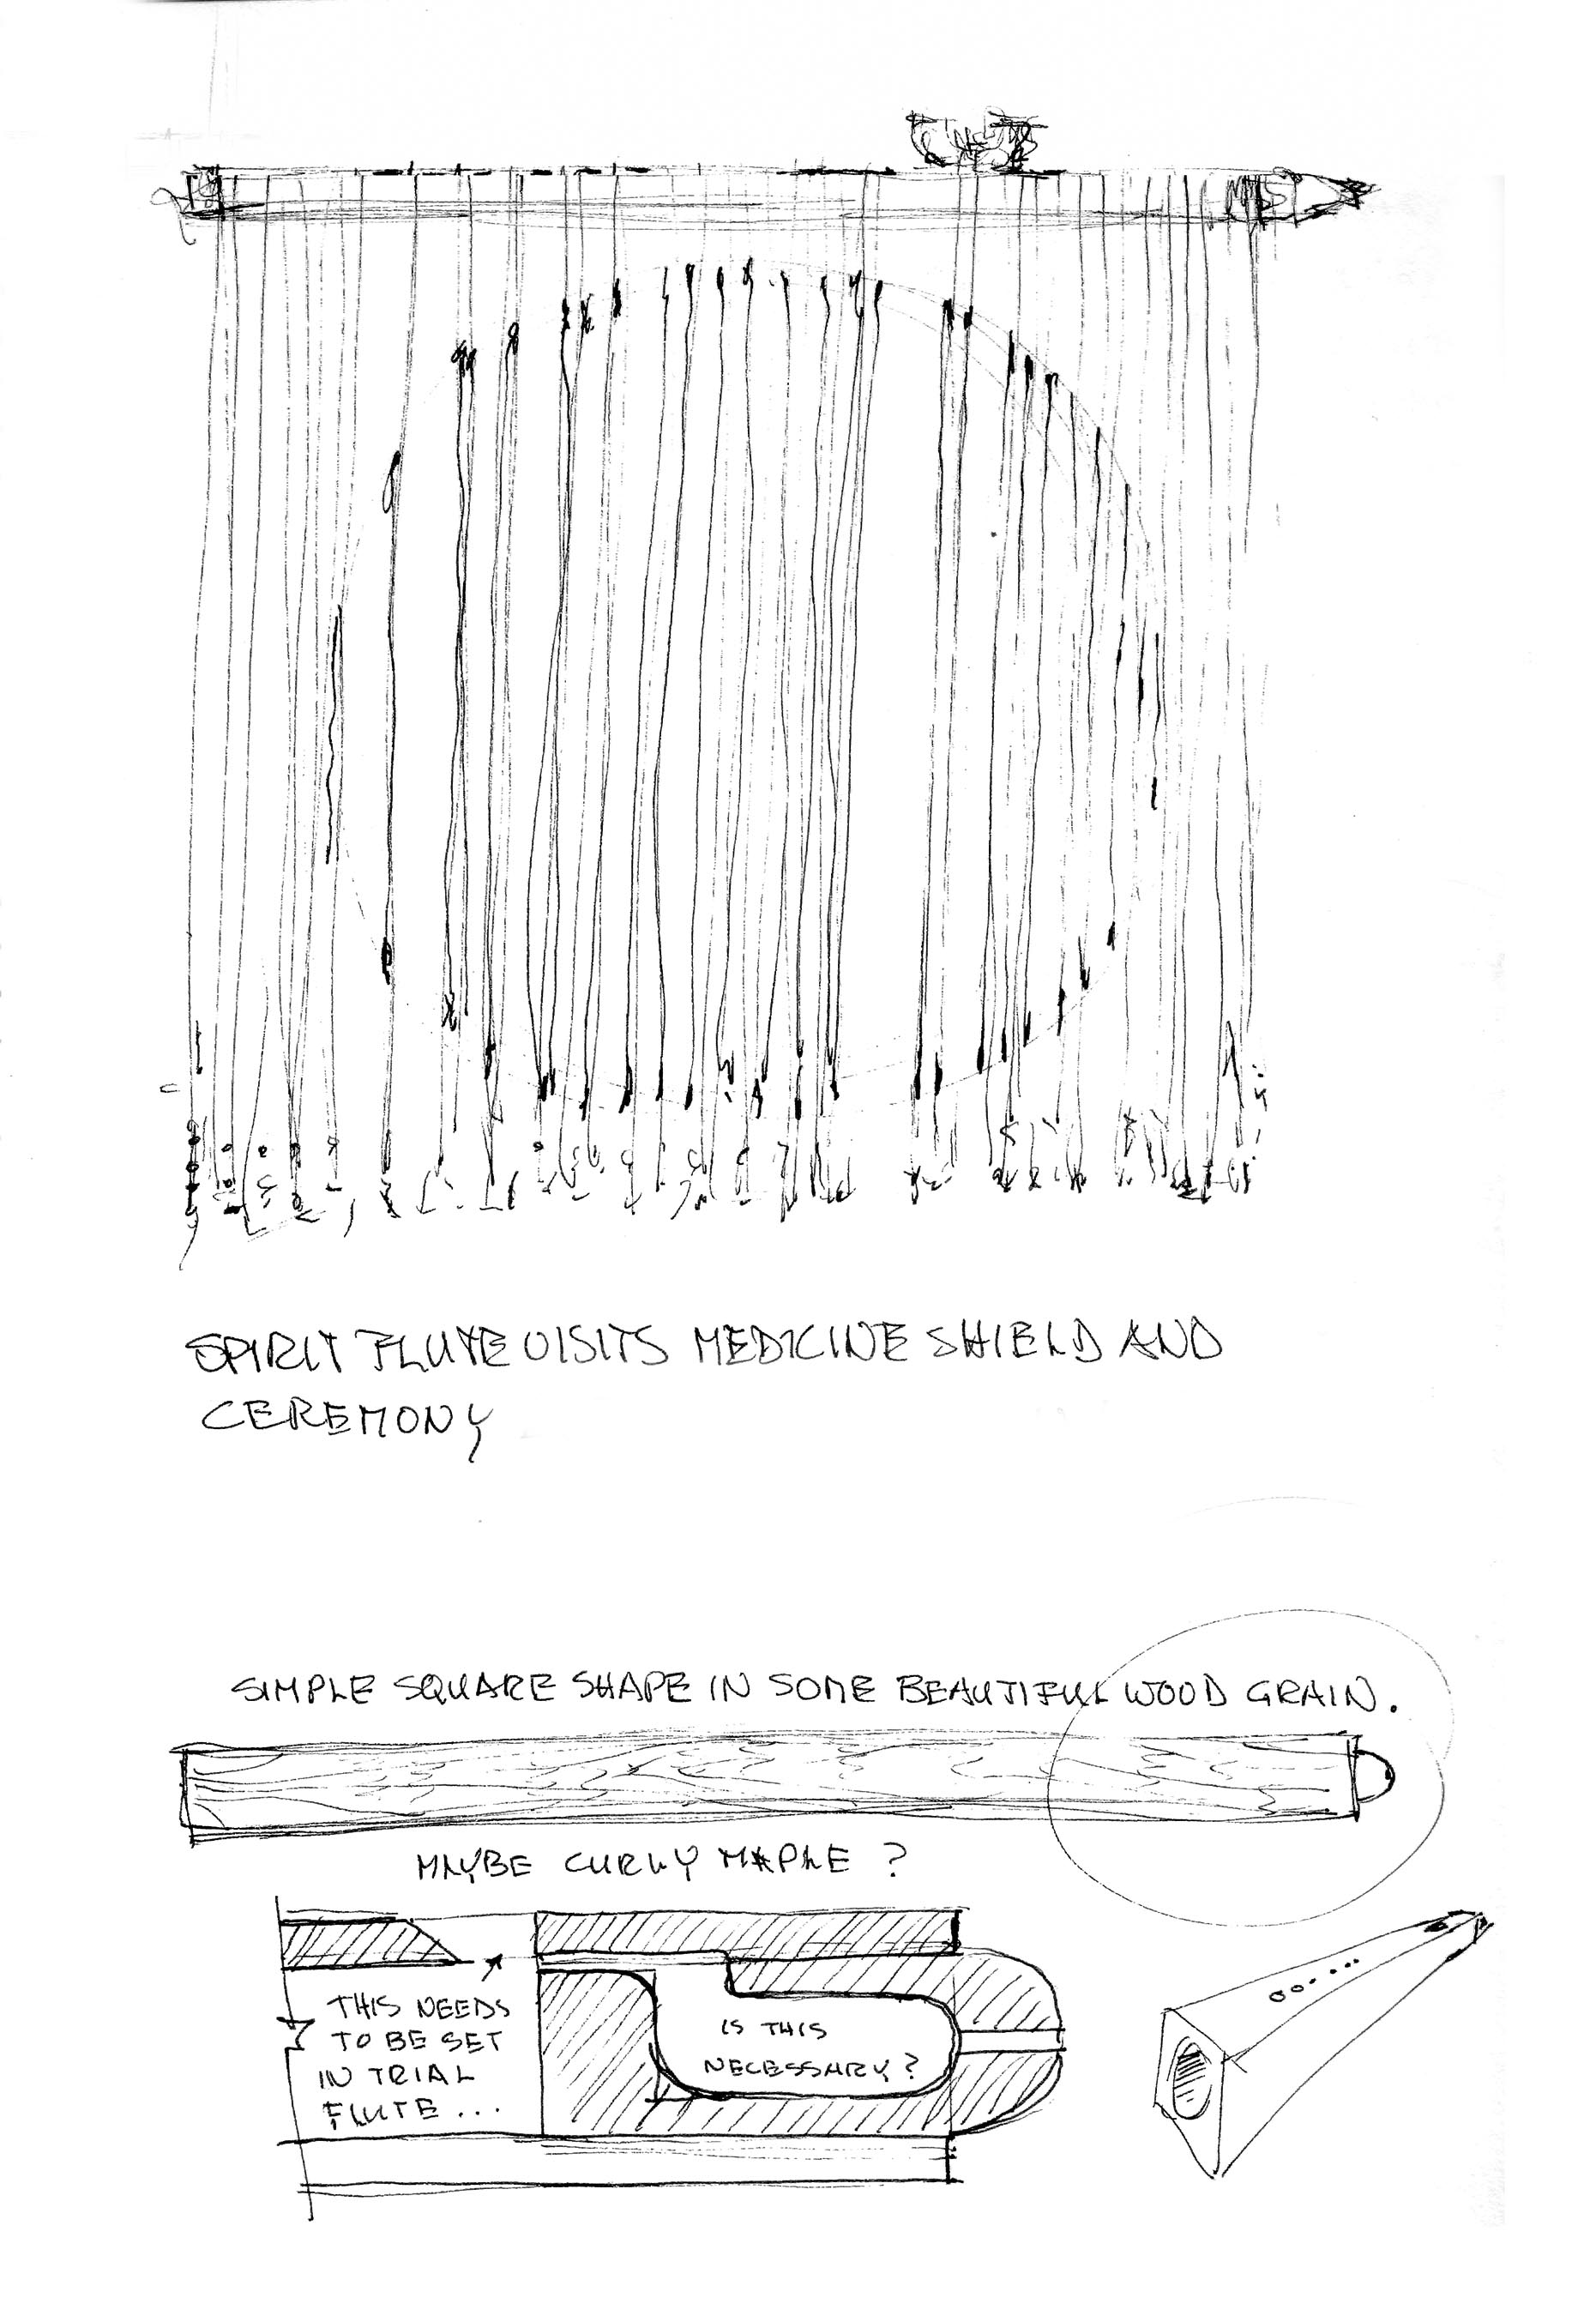 SPIRIT FLUTE VISITS MEDICINE SHIELD AND
CEREMONY
SIMPLE SQUARE SHAPE IN SOME BEAUTIFUL WOOD GRAIN.
MAYBE CURLY MAPLE ?
THIS NEEDS
TO BE SET
IN TRIAL
FLUTE...
IS THIS
NECESSARY?